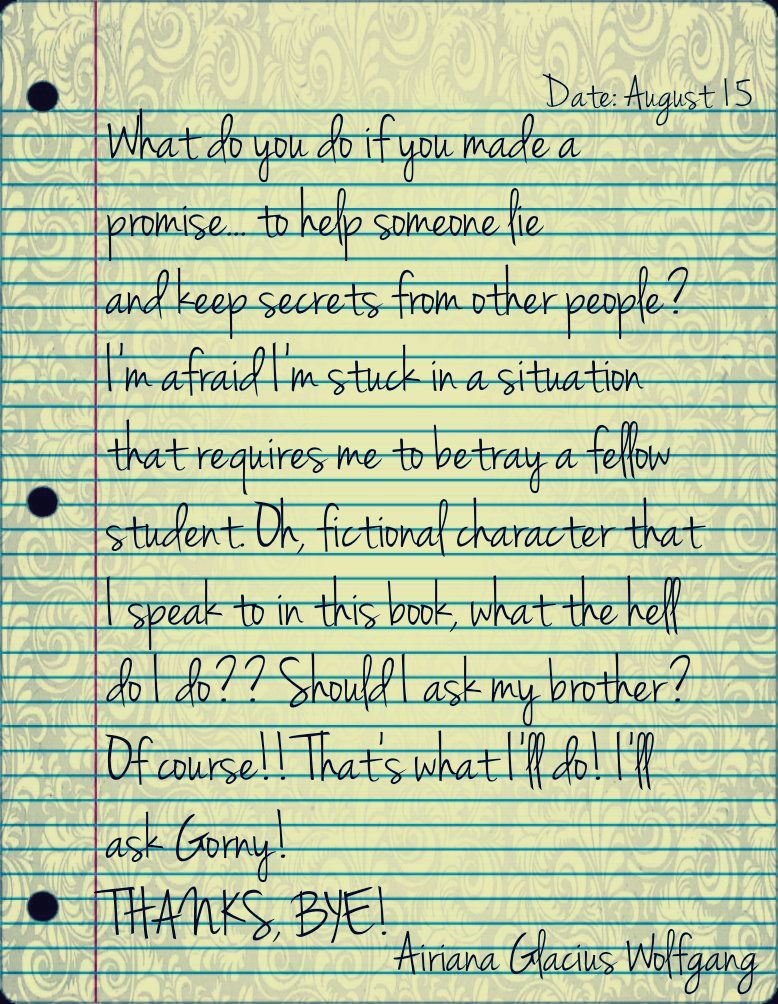 Date: August 15
What do you do if you made a
promise... to help someone lie
and keep secrets from other people?
I'm afraid I'm stuck in a situation
that requires me to betray a fellow
student. Oh, fictional character that
I speak to in this book, what the hell
do I do?? Should I ask my brother?
Of course!! That's what I'll do! I'll
ask Gorny!
THANKS, BYE!
Airiana Glacius Wolfgang